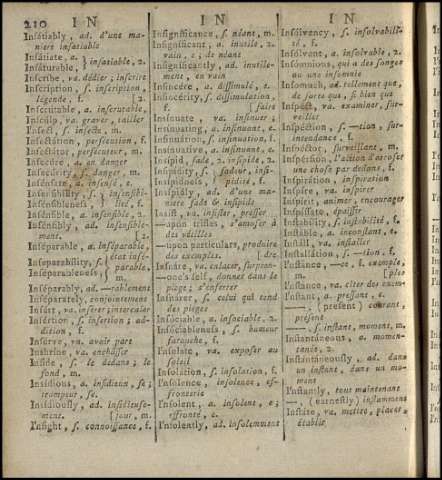 210 IN IN IN
Insátiably, ad. d'une ma-
niere insatiable
Insátiate, a. } insatiable, 2.
Insáturable, }
Inscríbe, va. dédier; inscrire
Inscríption, s. inscription,
légende, f. [2.
Inscrútable, a. inscrutable,
Insculp, va. graver, tailler
I'nsect, s. insecte, m.
Insectátion, persecution, f.
Insectátor, persecuteur, m.
Insecúre, a. en danger
Insecúrity, s. danger, m.
Insénsate, a. insensé, e.
Insensibílity, s. } insensibi-
Insénsibleness, } lité, f.
Insénsible, a. insensible, 2.
Insénsibly, ad. insensible-
ment.
Inséparable, a. inséparable,
Inseparabílity, s. } état insé-
Inséparableness, } parable,
m.
Inséparably, ad. —rablement
Inséparately, conjointement
Insért, va. insérer; intercaler
Insértion, s. insertion; ad-
dition, f.
Insérve, va. avoir part
Inshríne, va. enchâsser
Inside, s. le dedans; le
fond, m.
Insídious, a. insidieux, se;
trompeur, se.
Insídiously, ad. insidieuse-
ment. [jour, m.
I'nsight, s. connoissance, f.
Insigníficance, s. néant, m.
Insigníficant, a. inutile, 2.
vain, e; de néant
Insigníficantly, ad. inutile-
ment, en vain
Insincére, a. dissimulé, e.
Insincérity, s. dissimulation,
f. [faire
Insínuate, va. insinuer;
Insínuating, a. insinuant, e.
Insinuátion, s. insinuation, f.
Insínuative, a. insinuant, e.
Insípid, fade, 2. insipide, 2.
Insipídity, s. } fadeur, insi-
Insípidness, } pidité, f.
Insípidly, ad. d'une ma-
niere fade & insipide
Insíst, va. insister, presser
—upon trifles, s'amuser à
des vétilles
—upon particulars, produire
des exemples. [dre
Insnáre, va. enlacer, surpren-
—one's self, donner dans le
piege; s'enferrer
Insnárer, s. celui qui tend
des pieges
Insóciable, a. insociable, 2.
Insóciableness, s. humeur
farouche, f.
I'nsolate, va. exposer au
soleil
Insolátion, s. insolation, f.
I'nsolence, insolence, ef-
fronterie
I'nsolent, a. insolent, e;
effronté, e.
I'nsolently, ad. insolemment
Insólvency, s. insolvabili-
té, f.
Insólvent, a. insolvable, 2.
Insómnious, qui a des songes
ou une insomnie
Insomuch, ad. tellement que,
de sorte que, si bien que
Inspéct, va. examiner, sur-
veiller
Inspéction, s. —tion, sur-
intendance, f.
Inspéctor, surveillant, m.
Inspérsion, l'action d'arroser
une chose par dessus, f.
Inspirátion, inspiration
Inspíre, va. inspirer
Inspírit, animer, encourager
Inspíssate, épaissir
Instabílity, s. instabilité, f.
Instable, a. inconstant, e.
Instáll, va. installer
Installátion, s. —tion, f.
I'nstance, —ce, f. exemple,
m. [ples
I'nstance, va. citer des exem-
I'nstant, a. pressant, e.
—, (present) courant,
présent
—, s. instant, moment, m.
Instantáneous, a. momen-
tanée, 2.
Instantáneously, ad. dans
un instant, dans un mo-
ment
I'nstantly, tout maintenant
—, (earnestly) instamment
Instáte, va. mettre, placer,
établir